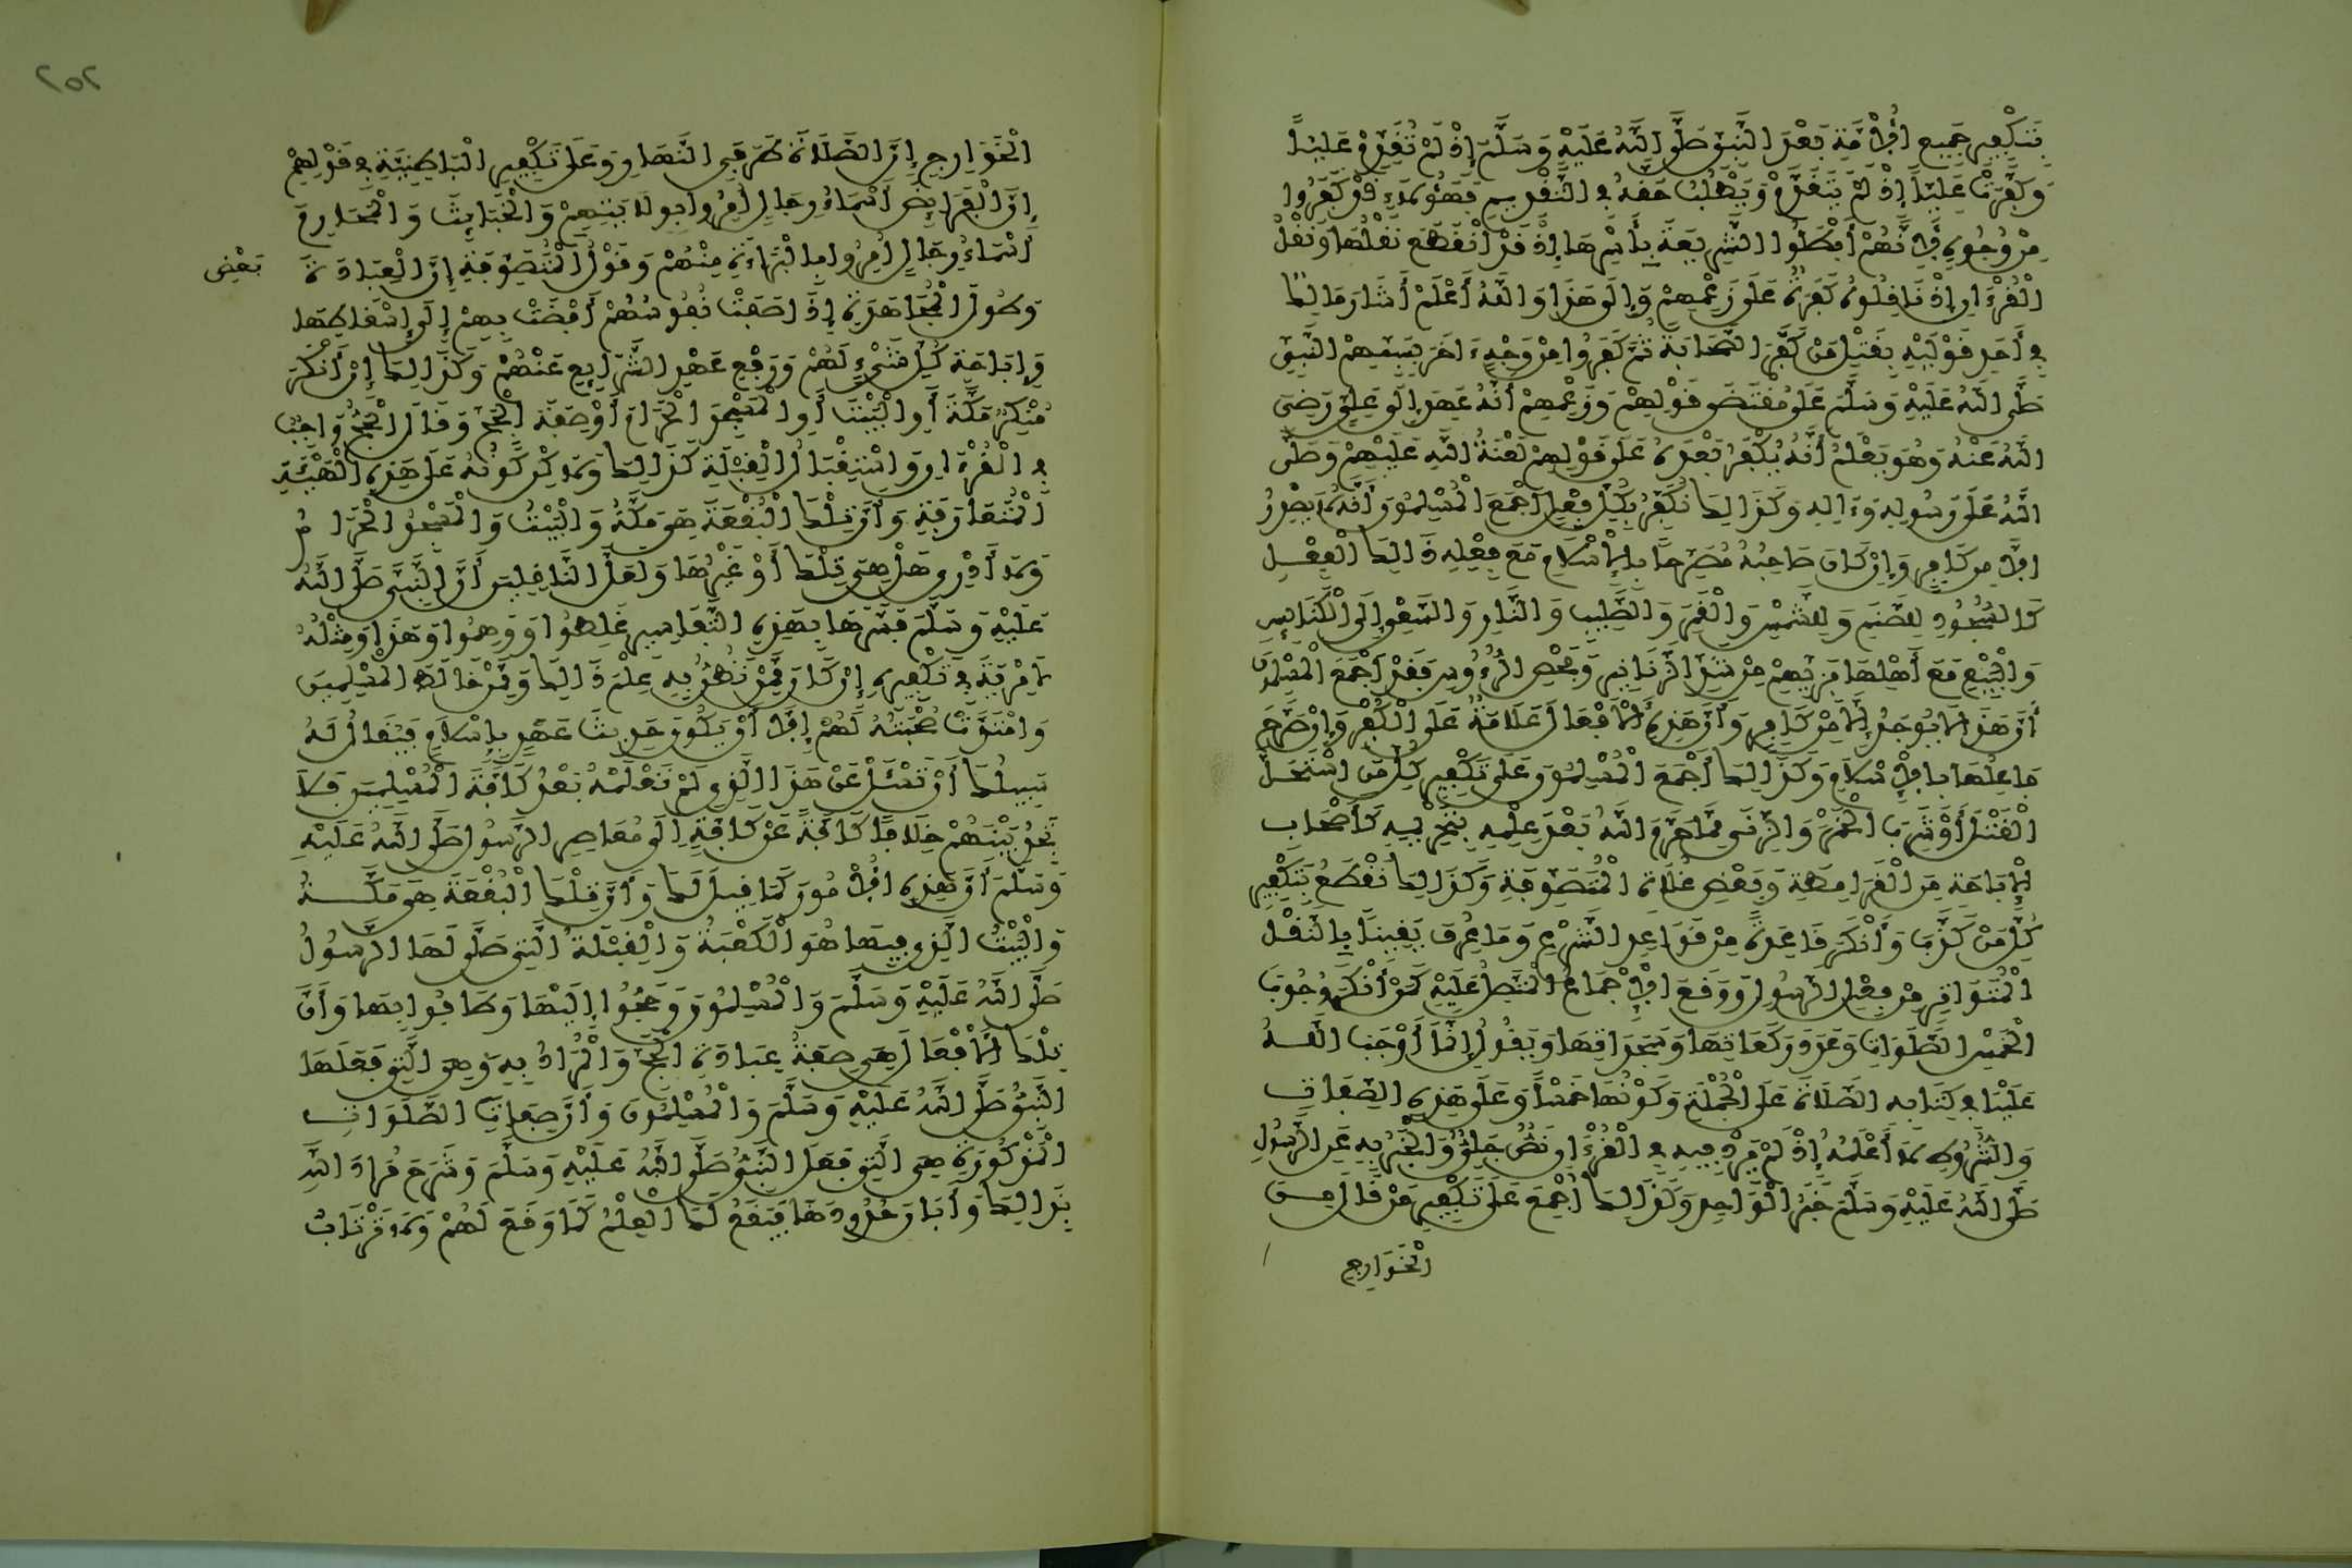 بِتَكْفِيرِ جَمِيعِ الْأُمَّةِ بَعْدَ النَّبِيِّ صَلَّى اللَّهُ عَلَيْهِ وَسَلَّمَ إِذْ لَمْ تُقَدِّمْ عَلِيّاً
وَكَفَّرَتْ عَلِيّاً إِذْ لَمْ يَتَقَدَّمْ وَيَطْلُبْ حَقَّهُ فِي التَّقْدِيمِ فَهَٰؤُلَاءِ قَدْ كَفَرُوا
مِنْ وُجُوهٍ لِأَنَّهُمْ أَبْطَلُوا الشَّرِيعَةَ بِأَسْرِهَا إِذْ قَدْ انْقَطَعَ نَقْلُهَا وَنَقْلُ
الْقُرْءَانِ إِذْ نَاقِلُوهُ كَفَرَةٌ عَلَى زَعْمِهِمْ وَإِلَى هَذَا وَاللَّهُ أَعْلَمُ أَشَارَ مَالِكٌ
فِي أَحَدِ قَوْلَيْهِ بِقَتْلِ مَنْ كَفَّرَ الصَّحَابَةَ ثُمَّ كَفَرُوا مِنْ وَجْهٍ ءَاخَرَ بِسَبِّهِمْ النَّبِيَّ
صَلَّى اللَّهُ عَلَيْهِ وَسَلَّمَ عَلَى مُقْتَضَى قَوْلِهِمْ وَزَعْمِهِمْ أَنَّهُ عَهِدَ إِلَى عَلِيٍّ رَضِيَ
اللَّهُ عَنْهُ وَهُوَ يَعْلَمُ أَنَّهُ يُكْفَرُ بَعْدَهُ عَلَى قَوْلِهِمْ لَعْنَةُ اللَّهِ عَلَيْهِمْ وَصَلَّى
اللَّهُ عَلَى رَسُولِهِ وَءَالِهِ وَكَذَالِكَ نُكَفِّرُ بِكُلِّ فِعْلٍ أَجْمَعَ الْمُسْلِمُونَ أَنَّهُ لَا يَصْدُرُ
إِلَّا مِن كَافِرٍ وَإِنْ كَانَ صَاحِبُهُ مُصَرِّحاً بِالْإِسْلَامِ مَعَ فِعْلِهِ ذَالِكَ الْفِعْلَ
كَالسُّجُودِ لِلصَّنَمِ وَلِلشَّمْسِ وَالْقَمَرِ وَالصَّلِيبِ وَالنَّارِ وَالسَّعْيِ إِلَى الْكَنَائِسِ
وَالْبِيَعِ مَعَ أَهْلِهَا بِزِيِّهِمْ مِنْ شَدِّ الزَّنَانِيرِ وَفَحْصِ الرُّءُوسِ فَقَدْ أَجْمَعَ الْمُسْلِمُونَ
أَنَّ هَذَا لَا يُوجَدُ إِلَّا مِنْ كَافِرٍ وَأَنَّ هَذِهِ الْأَفْعَالَ عَلَامَةٌ عَلَى الْكُفْرِ وَإِنْ صَرَّحَ
فَاعِلُهَا بِالْإِسْلَامِ وَكَذَالِكَ أَجْمَعَ الْمُسْلِمُونَ عَلَى تَكْفِيرِ كُلِّ مَنِ اسْتَحَلَّ
الْقَتْلَ أَوْ شُرْبَ الْخَمْرِ وَالزِّنَى مِمَّا حَرَّمَ اللَّهُ بَعْدَ عِلْمِهِ بِتَحْرِيمِهِ كَأَصْحَابِ
الْإِبَاحَةِ مِنَ الْقَرَامِطَةِ وَبَعْضِ غُلَاةِ الْمُتَصَوِّفَةِ وَكَذَالِكَ نَقْطَعُ بِتَكْفِيرِ
كُلِّ مَنْ كَذَّبَ وَأَنْكَرَ قَاعِدَةً مِنْ قَوَاعِدِ الشَّرْعِ وَمَا عُرِفَ يَقِيناً بِالنَّقْلِ
الْمُتَوَاتِرِ مِنْ فِعْلِ الرَّسُولِ وَوَقَعَ الْإِجْمَاعُ الْمُتَّصِلُ عَلَيْهِ كَمَنْ أَنْكَرَ وُجُوبَ
الْخَمْسِ الصَّلَوَاتِ وَعَدَدَ رَكَعَاتِهَا وَسَجَدَاتِهَا وَيَقُولُ إِنَّمَا أَوْجَبَ اللَّهُ
عَلَيْنَا فِي كِتَابِهِ الصَّلَاةَ عَلَى الْجُمْلَةِ وَكَوْنُهَا خَمْساً وَعَلَى هَذِهِ الصِّفَاتِ
وَالشُّرُوطِ لَا أَعْلَمُهُ إِذْ لَمْ يَرِدْ فِيهِ فِي الْقُرْءَانِ نَصٌّ جَلِيٌّ وَالْخَبَرُ بِهِ عَنِ الرَّسُولِ
صَلَّى اللَّهُ عَلَيْهِ وَسَلَّمَ خَبَرُ الْوَاحِدِ وَكَذَالِكَ أُجْمِعَ عَلَى تَكْفِيرِ مَنْ قَالَ مِنَ
الْخَوَارِجِ
٢٥٢
الْخَوَارِجِ إِنَّ الصَّلَاةَ طَرَفَيِ النَّهَارِ وَعَلَى تَكْفِيرِ الْبَاطِنِيَّةِ فِي قَوْلِهِمْ
إِنَّ الْفَرَائِضَ أَسْمَاءُ رِجَالٍ أُمِرُوا بِوِلَايَتِهِمْ وَالْخَبَائِثَ وَالْمَحَارِمَ
أَسْمَاءُ رِجَالٍ أُمِرُوا بِالْبَرَاءَةِ مِنْهُمْ وَقَوْلُ الْمُتَصَوِّفَةِ إِنَّ الْعِبَادَةَ
بَعْضِ
وَطُولَ الْمُجَاهَدَةِ إِذَا صَفَتْ نُفُوسُهُمْ أَفْضَتْ بِهِمْ إِلَى إِسْقَاطِهَا
وَإِبَاحَةِ كُلِّ شَيْءٍ لَهُمْ وَرَفْعِ عَهْدِ الشَّرَايِعِ عَنْهُمْ وَكَذَالِكَ إِنْ أَنْكَرَ
مُنْكِرٌ مَكَّةَ أَوِ الْبَيْتَ أَوِ الْمَسْجِدَ الْحَرَامَ أَوْ صِفَةَ الْحَجِّ وَقَالَ الْحَجُّ وَاجِبٌ
فِي الْقُرْءَانِ وَاسْتِقْبَالُ الْقِبْلَةِ كَذَالِكَ وَلَاكِنْ كَوْنُهُ عَلَى هَذِهِ الْهَيْئَةِ
الْمُتَعَارَفَةِ وَأَنَّ تِلْكَ الْبُقْعَةَ هِيَ مَكَّةُ وَالْبَيْتُ وَالْمَسْجِدُ الْحَرَامُ
لَا أَدْرِي هَلْ هِيَ تِلْكَ أَوْ غَيْرُهَا وَلَعَلَّ النَّاقِلِينَ أَنَّ النَّبِيَّ صَلَّى اللَّهُ
عَلَيْهِ وَسَلَّمَ فَسَّرَهَا بِهَذِهِ التَّفَاسِيرِ غَلِطُوا وَوَهِمُوا وَهَذَا وَمِثْلُهُ
لَا مِرْيَةَ فِي تَكْفِيرِهِ إِنْ كَانَ مِمَّنْ يُظَنُّ بِهِ عِلْمُ ذَالِكَ وَمِمَّنْ خَالَطَ الْمُسْلِمِينَ
وَامْتَدَّتْ صُحْبَتُهُ لَهُمْ إِلَّا أَنْ يَكُونَ حَدِيثَ عَهْدٍ بِإِسْلَامٍ فَيُقَالُ لَهُ
سَبِيلُكَ أَنْ تَسْئَلَ عَنْ هَذَا الَّذِي لَمْ تَعْلَمْهُ بَعْدُ كَافَّةَ الْمُسْلِمِينَ فَلَا
تَجِدُ بَيْنَهُمْ خِلَافاً كَافَّةً عَنْ كَافَّةٍ إِلَى مُعَاصِرِ الرَّسُولِ صَلَّى اللَّهُ عَلَيْهِ
وَسَلَّمَ أَنَّ هَذِهِ الْأُمُورَ كَمَا قِيلَ لَكَ وَأَنَّ تِلْكَ الْبُقْعَةَ هِيَ مَكَّةُ
وَالْبَيْتُ الَّذِي فِيهَا هُوَ الْكَعْبَةُ وَالْقِبْلَةُ الَّتِي صَلَّى لَهَا الرَّسُولُ
صَلَّى اللَّهُ عَلَيْهِ وَسَلَّمَ وَالْمُسْلِمُونَ وَحَجُّوا إِلَيْهَا وَطَافُوا بِهَا وَأَنَّ
تِلْكَ الْأَفْعَالَ هِيَ صِفَةُ عِبَادَةِ الْحَجِّ وَالْمُرَادُ بِهِ وَهِيَ الَّتِي فَعَلَهَا
النَّبِيُّ صَلَّى اللَّهُ عَلَيْهِ وَسَلَّمَ وَالْمُسْلِمُونَ وَأَنَّ صِفَاتِ الصَّلَوَاتِ
الْمَذْكُورَةِ هِيَ الَّتِي فَعَلَ النَّبِيُّ صَلَّى اللَّهُ عَلَيْهِ وَسَلَّمَ وَشَرَحَ مُرَادَ اللَّهِ
بِذَالِكَ وَأَبَانَ حُدُودَهَا فَيَقَعُ لَكَ الْعِلْمُ كَمَا وَقَعَ لَهُمْ وَلَا تَرْتَابُ